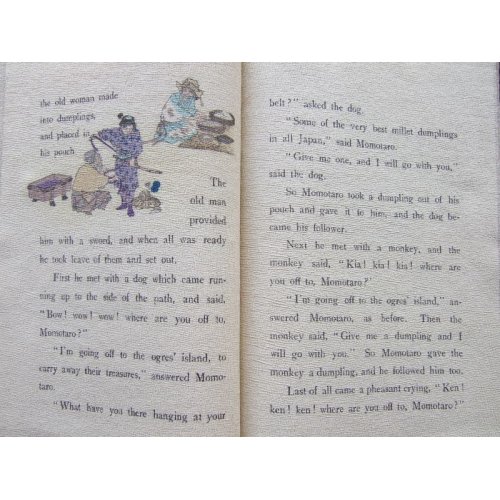 the old woman made
into dumplings,
and placed in
his pouch
The
old man
provided
him with a sword, and when all was ready
he took leave of them and set out.
First he met with a dog which came run-
ning up to the side of the path, and said,
"Bow! wow! wow! where are you off to,
Momotaro?"
"I'm going off to the ogres' island, to
carry away their treasures," answered Momo-
taro.
"What have you there hanging at your
belt?" asked the dog.
"Some of the very best millet dumplings
in all Japan," said Momotaro.
"Give me one, and I will go with you,"
said the dog.
So Momotaro took a dumpling out of his
pouch and gave it to him, and the dog be-
came his follower.
Next he met with a monkey, and the
monkey said, "Kia! kia! kia! where are
you off to, Momotaro?"
"I'm going off to the ogres' island," an-
swered Momotaro, as before. Then the
monkey said, "Give me a dumpling and I
will go with you." So Momotaro gave the
monkey a dumpling, and he followed him too.
Last of all came a pheasant crying, "Ken!
ken! ken! where are you off to, Momotaro?"